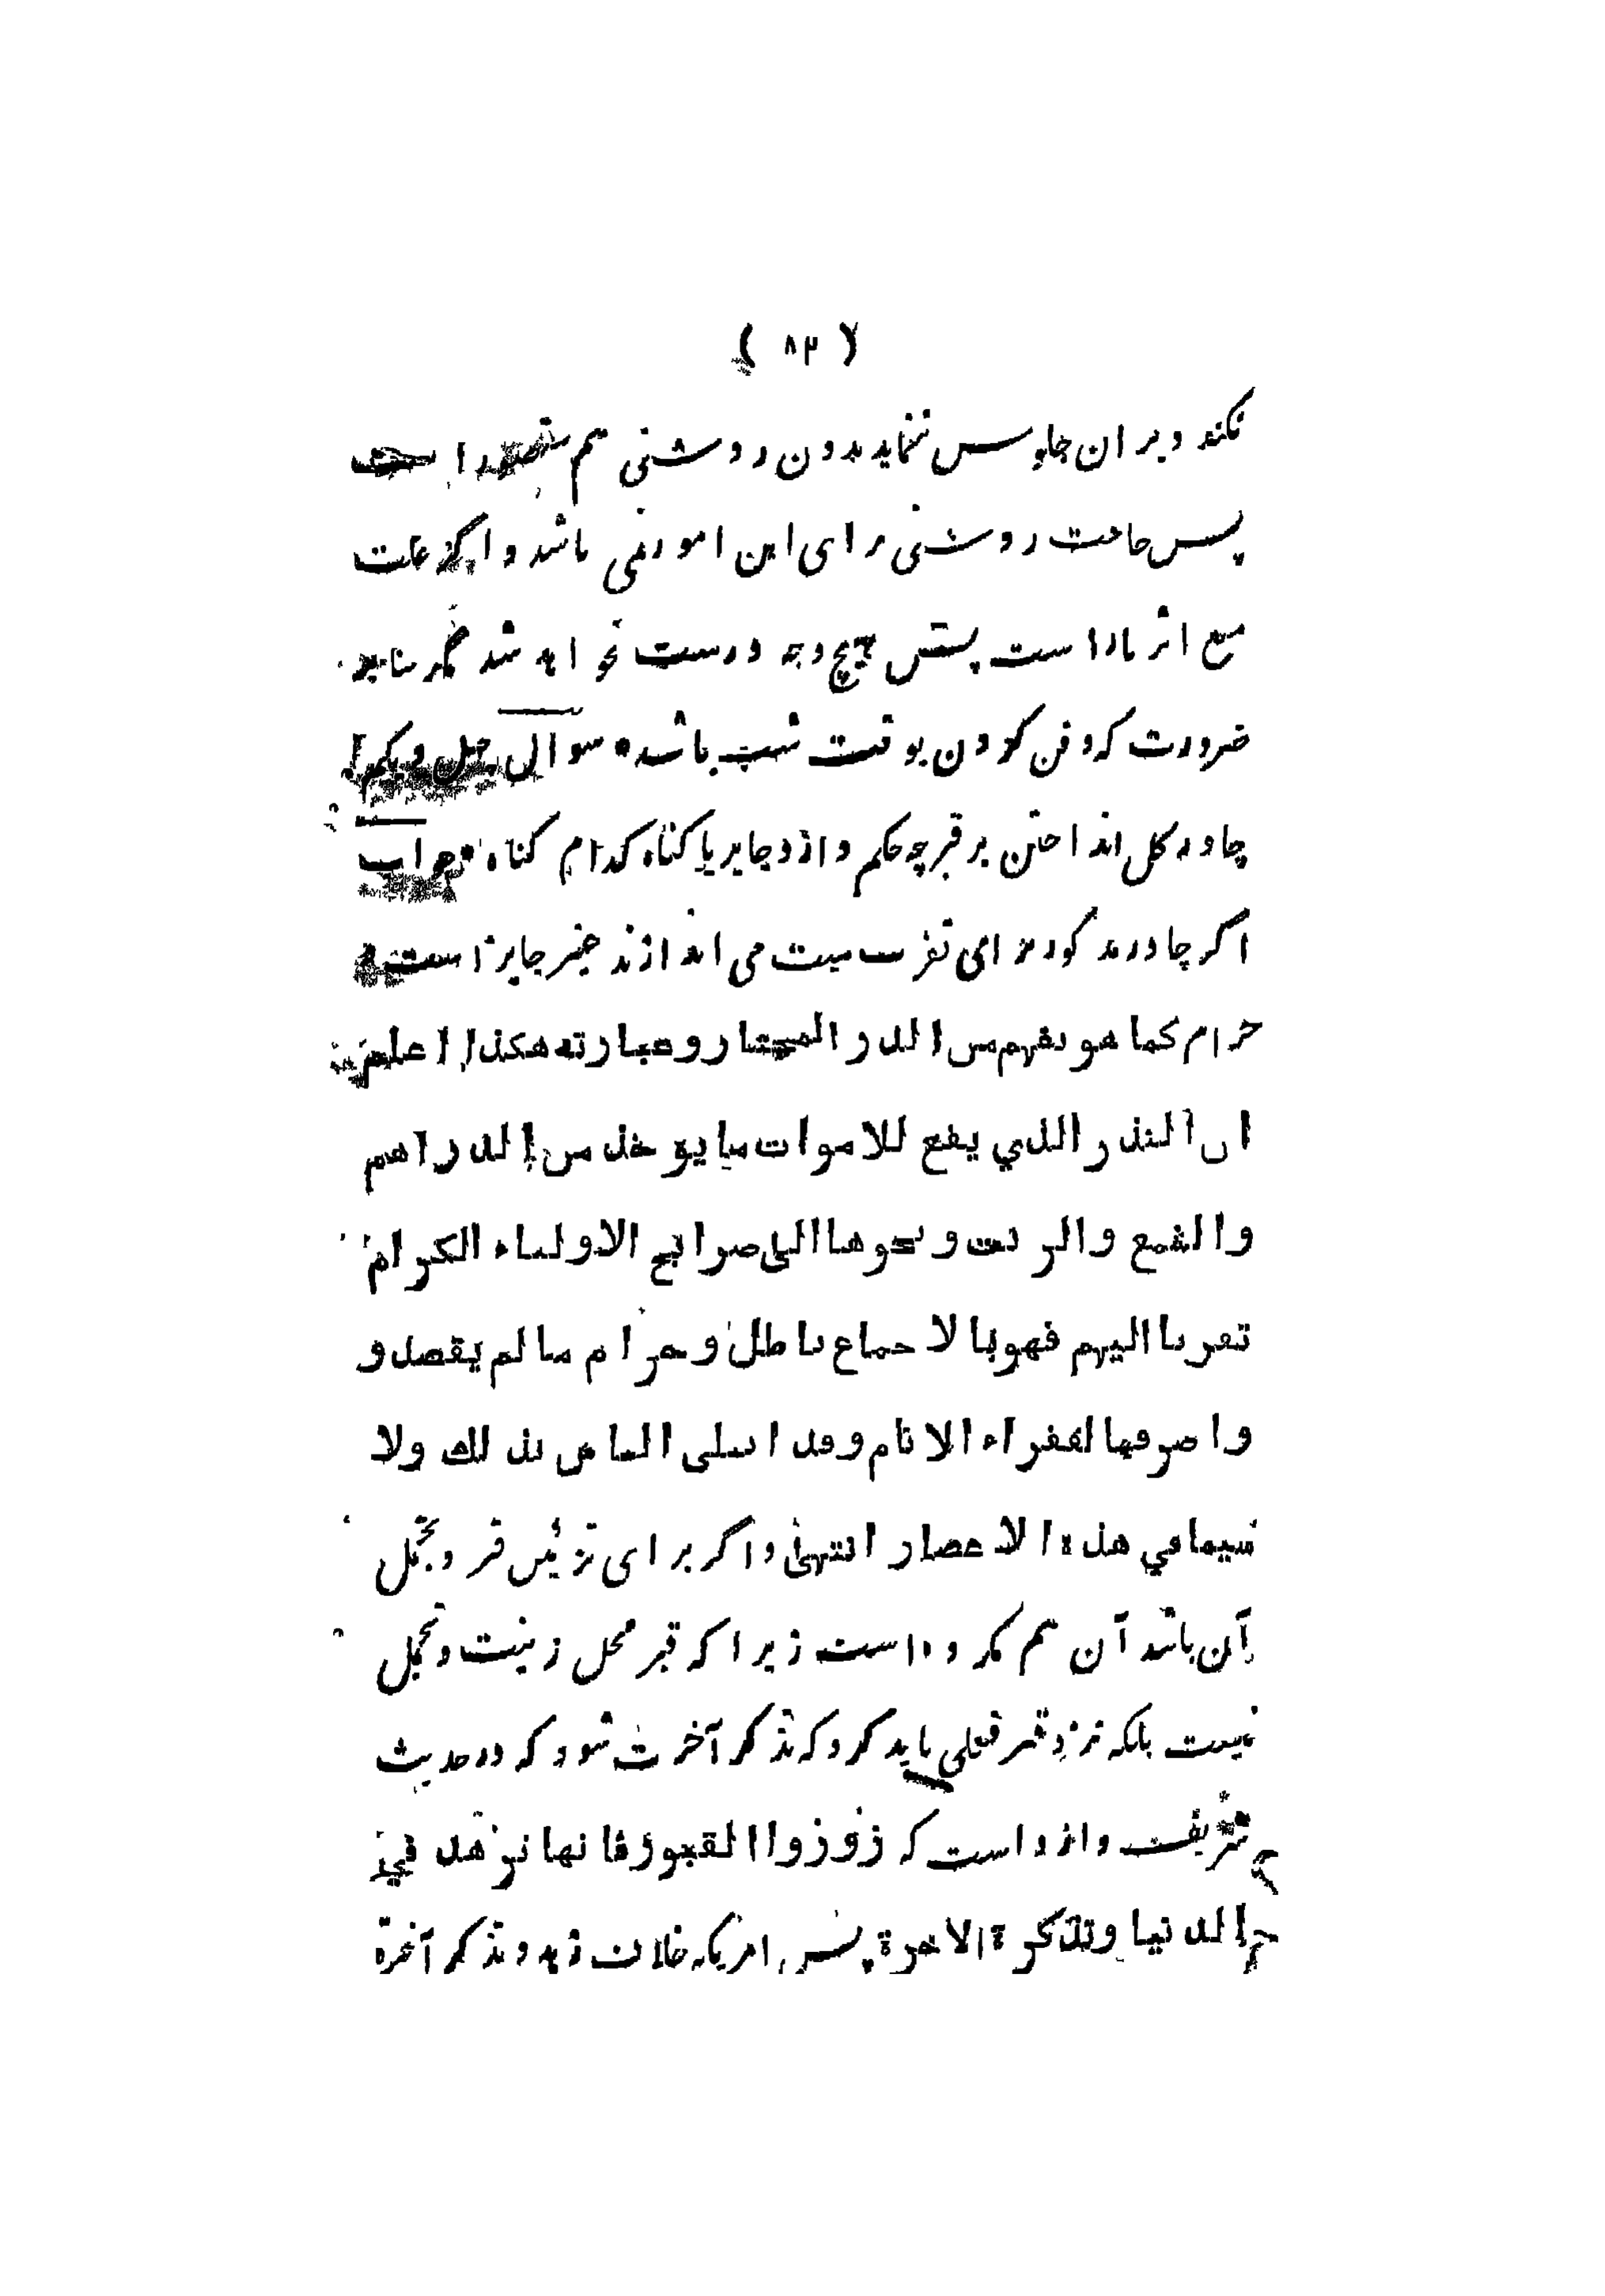 ( ۸۲ )
نکند و بران جلوس ننماید بدون روشنی هم متصور است
پس حاجت روشنی برای این امور نمی باشد و اگر علت
منع اثر نار است پس بهیچ وجه درست نخواهد شد مگر بنابر
ضرورت که دفن کردن بوقت شب باشد سوال چهل و یکم
چادر گل انداختن بر قبر چه حکم دارد جایز یا گناه کدام گناه جواب
اگر چادر بر گور برای تقرب میت می اندازند غیر جایز است و
حرام کما هو یفهم من الدر المختار و عبارته هکذا اعلم
ان النذر الذي یقع للاموات ما یوخذ من الدراهم
والشمع والزیت و نحوها الی ضرایح الاولیاء الکرام
تقربا الیهم فهو بالاجماع باطل و حرام ما لم یقصدو
واصرفها لفقراء الانام وقد ابتلی الناس بذلك ولا
سیما في هذه الاعصار انتهی و اگر برای تزئین قبر و تجمل
آن باشد آن هم مکروه است زیرا که قبر محل زینت و تجمل
نیست بلکه نزد قبر فعلی باید کرد که تذکر آخرت شود که در حدیث
شریف وارد است که زوروا القبور فانها تزهد في
الدنیا وتذکرة الاخرة پس امریکه خلاف زهد و تذکر آخرة